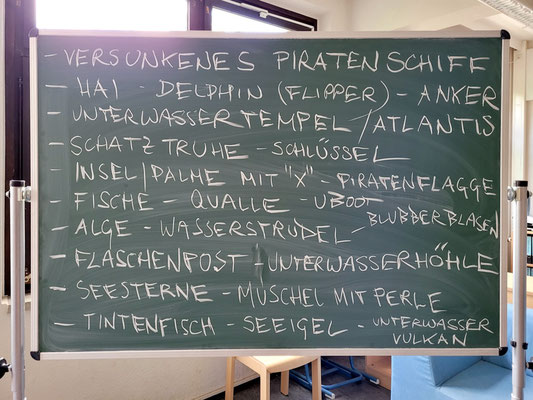 - VERSUNKENES PIRATENSCHIFF
- HAI - DELPHIN (FLIPPER) - ANKER
- UNTERWASSERTEMPEL / ATLANTIS
- SCHATZTRUHE - SCHLÜSSEL
- INSEL / PALME MIT "X" - PIRATENFLAGGE
- FISCHE - QUALLE - UBOOT
- ALGE - WASSERSTRUDEL - BLUBBERBLASEN
- FLASCHENPOST - UNTERWASSERHÖHLE
- SEESTERNE - MUSCHEL MIT PERLE
- TINTENFISCH - SEEIGEL - UNTERWASSER
VULKAN